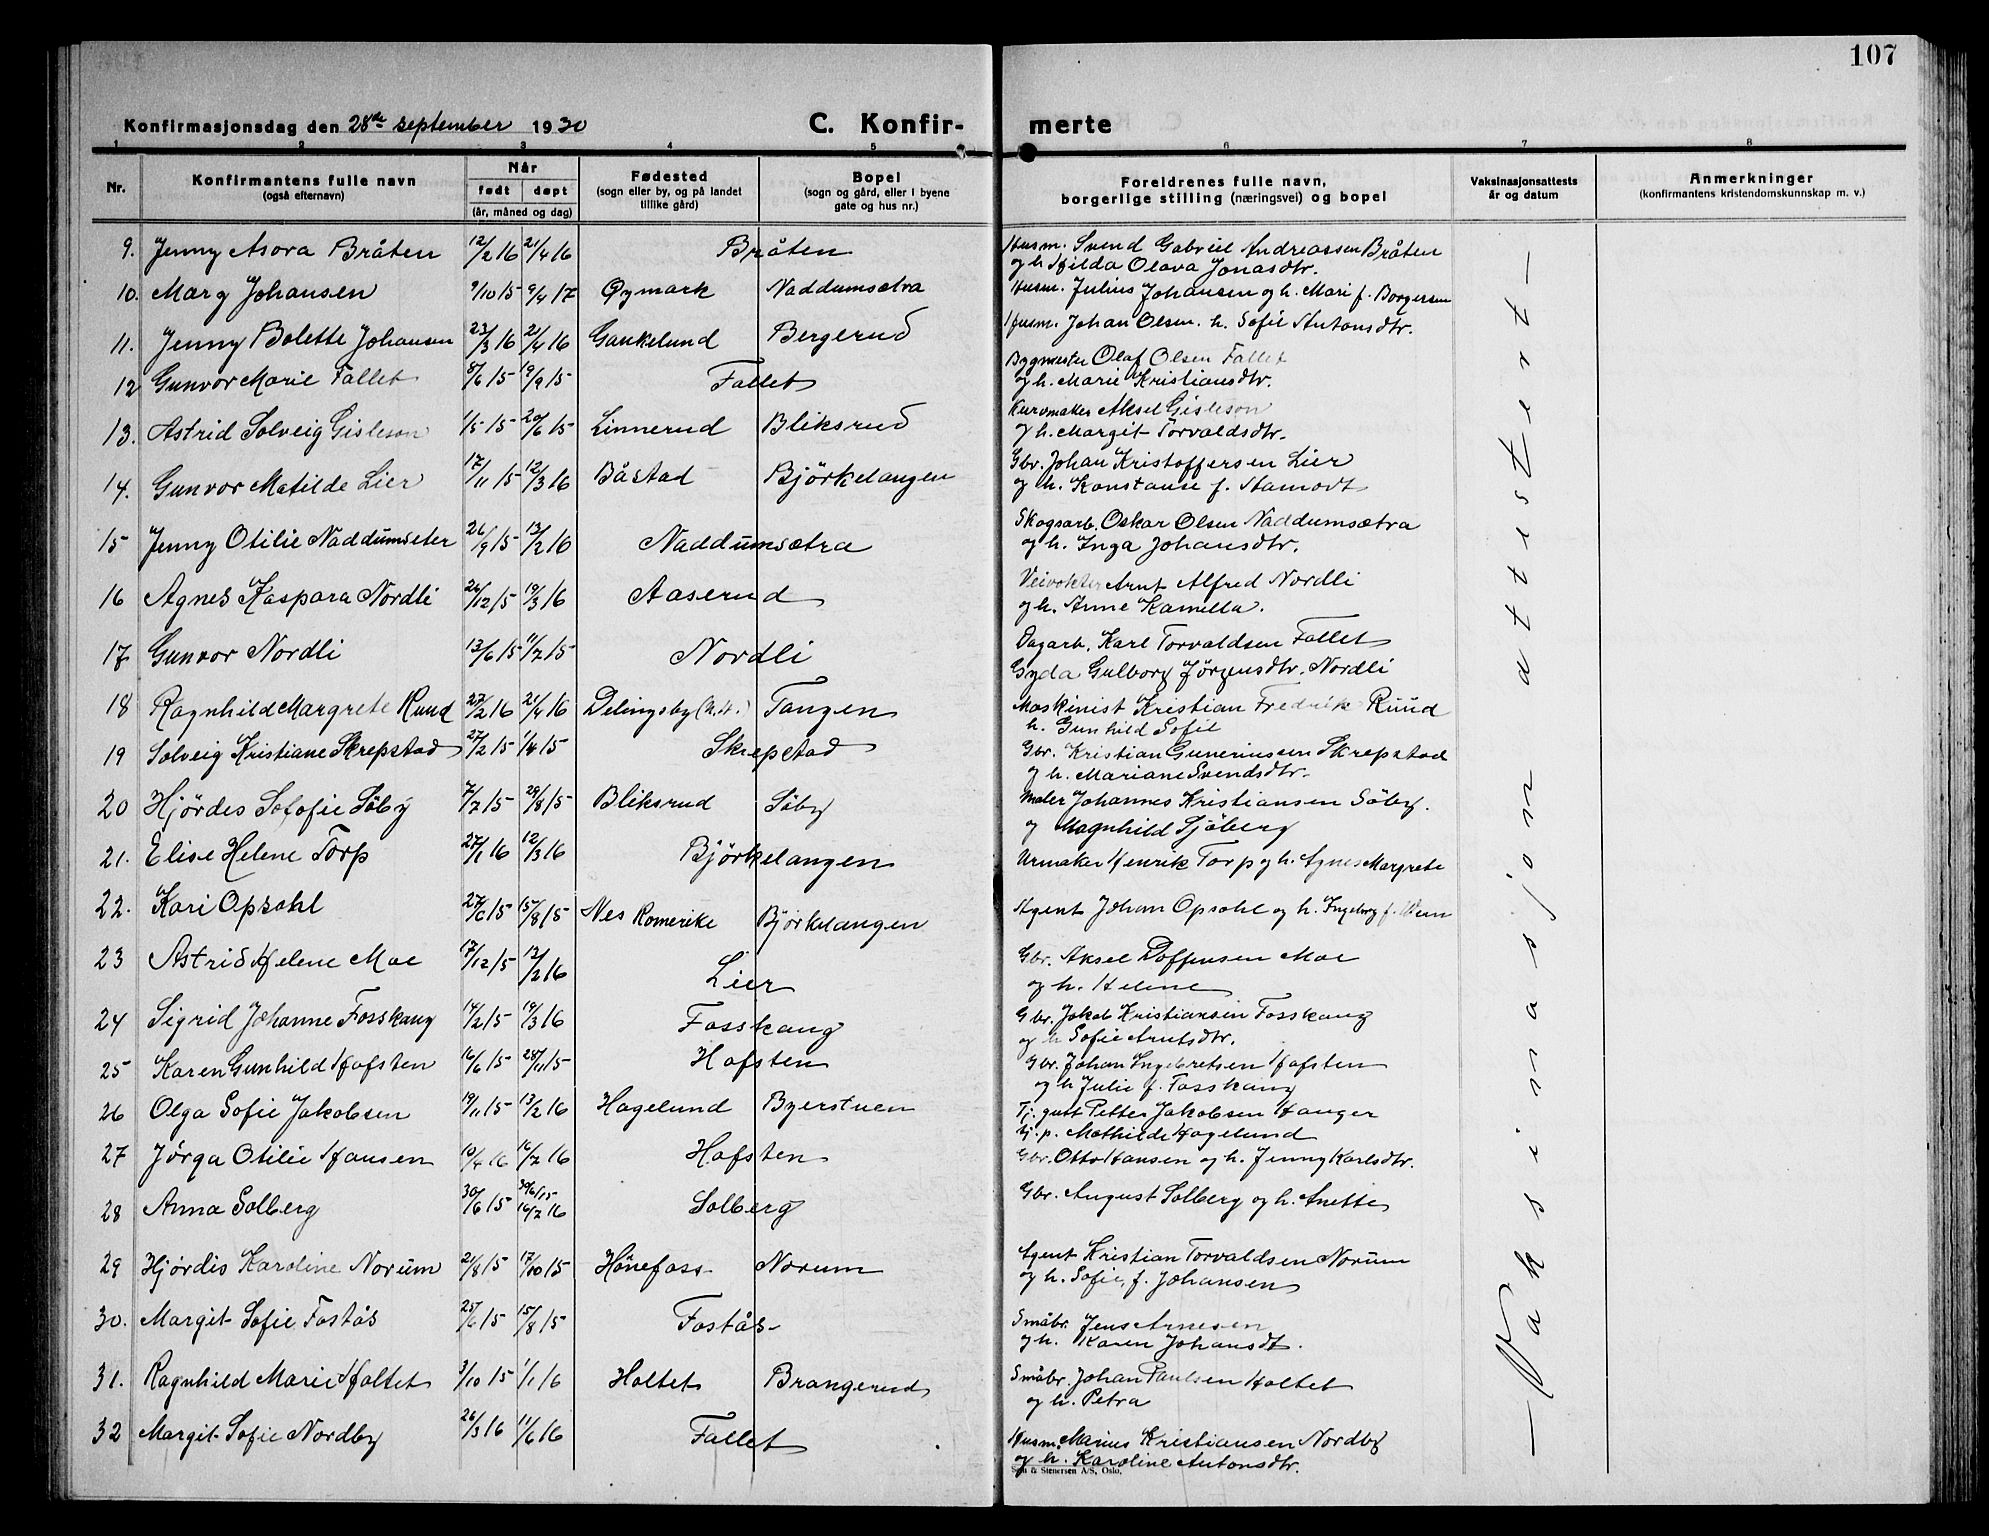 107
Konfirmasjonsdag den 28de september 1930 C. Konfir- merte
1 2 3 4 5 6 7 8
Nr. Konfirmantens fulle navn (også efternavn) Når født døpt (år, måned og dag) Fødested (sogn eller by, og på landet tillike gård) Bopel (sogn og gård, eller i byene gate og hus nr.) Foreldrenes fulle navn, borgerlige stilling (næringsvei) og bopel Vaksinasjonsattests år og datum Anmerkninger (konfirmantens kristendomskunnskap m. v.)
9. Jenny Asora Bråten 12/2 16 21/4 16 Bråten Husm. Svend Gabriel Andreassen Bråten
og h. Hilda Olava Jonasdtr.
10. Marg Johansen 9/10 15 9/4 17 Øymark Naddumsætra Husm. Julius Johansen og h. Mari f. Borgersen
11. Jenny Bolette Johansen 23/3 16 21/4 16 Gankelund Bergerud Husm. Johan Olsen. h. Sofie Antonsdtr.
12 Gunvor Marie Fallet 8/6 15 19/9 15 Fallet Bygmester Olaf Olsen Fallet
og h. Marie Kristiansdtr.
13. Astrid Solveig Gisleson 1/5 15 20/6 15 Linnerud Bliksrud Kurvmaker Aksel Gisleson
og h. Margit Torvaldsdtr.
14. Gunvor Matilde Lier 17/11 15 12/3 16 Båstad Björkelangen Gbr. Johan Kristoffersen Lier
og h. Konstanse f. Hamodt
15 Jenny Otilie Naddumseter 26/9 15 13/2 16 Naddumsætra Skogsarb. Oskar Olsen Naddumsætra
og h. Inga Johansdtr.
16 Agnes Kaspara Nordli 26/12 15 19/3 16 Aaserud Veivokter Arnt Alfred Nordli
og h. Anne Kamilla.
17 Gunvor Nordli 13/6 15 11/7 15 Nordli Dagarb. Karl Torvaldsen Fallet
Gyda Gulborg Jörgensdtr. Nordli
18 Ragnhild Margrete Ruud 27/2 16 21/4 16 Delingsby (N.H.) Tangen Maskinist Kristian Fredrik Ruud
h. Gunhild Sofie
19 Solveig Kristiane Skrepstad 27/2 15 1/4 15 Skrepstad Gbr. Kristian Gunerinssen Skrepstad
og h. Mariane Svendsdtr.
20 Hjördes Sofofie Söby 7/7 15 29/8 15 Bliksrud Söby Maler Johannes Kristiansen Söby.
og Magnhild Sjöberg
21. Elise Helene Torp 27/1 16 12/3 16 Björkelangen Urmaker Henrik Torp og h. Agnes Margrete
22. Kari Opsahl 27/6 15 15/8 15 Nes Romerike Björkelangen Agent Johan Opsahl og h. Ingeborg f.
23 Astrid Helene Moe 17/12 15 13/2 16 Lier Gbr. Aksel Doffensen Moe
og h. Helene
24 Sigrid Johanne Fosskaug 14/2 15 19/3 16 Fosskaug Gbr. Jakob Kristiansen Fosskaug
og h Sofie Arntsdtr.
25 Karen Gunhild Hofsten 16/6 15 28/11 15 Hofsten Gbr. Johan Ingebretsen Hofsten
og h Julie f. Fosskaug
26 Olga Sofie Jakobsen 19/11 15 13/2 16 Hagelund Byerstuen Tj. gutt Petter Jakobsen Hauger
tj. p. Mathilde Hagelund
27 Jørga Otilie Hansen 10/4 16 16/7 16 Hofsten Gbr. Otto Hansen og h. Jenny Karlsdtr.
28 Anna Solberg 30/6 15 30/6/15 16/7 16 Solberg Gbr. August Solberg og h. Anette
29 Hjördis Karoline Norum 21/8 15 17/10 15 Hönefoss Norum Agent Kristian Torvaldsen Norum
og h. Sofie, f. Johansen
30. Margit Sofie Fostås 25/6 15 15/8 15 Fostås Småbr. Jens Arnesen
og h. Karen Johansdt.
31. Ragnhild Marie Holtet 3/10 15 1/1 16 Holtet Brangerud Småbr. Johan Paulsen Holtet
og h. Petra
32 Margit Sofie Nordby 26/3 16 11/6 16 Fallet Husm. Marius Kristiansen Nordby
og h. Karoline Antonsdtr.
— Vaksinasjon attestert —
& Stenersen A/S, Oslo.